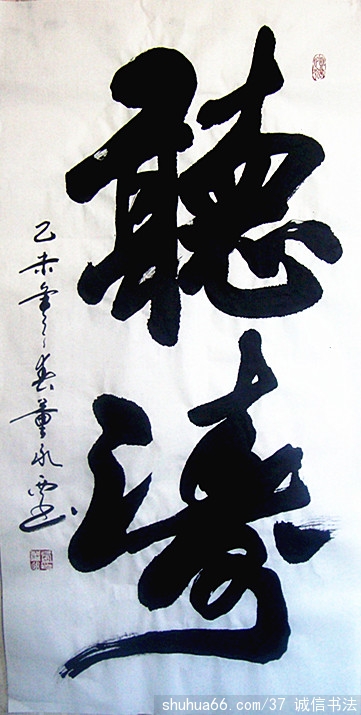 聽濤
乙未年之春董永西书
shuhua66.com/37 诚信书法